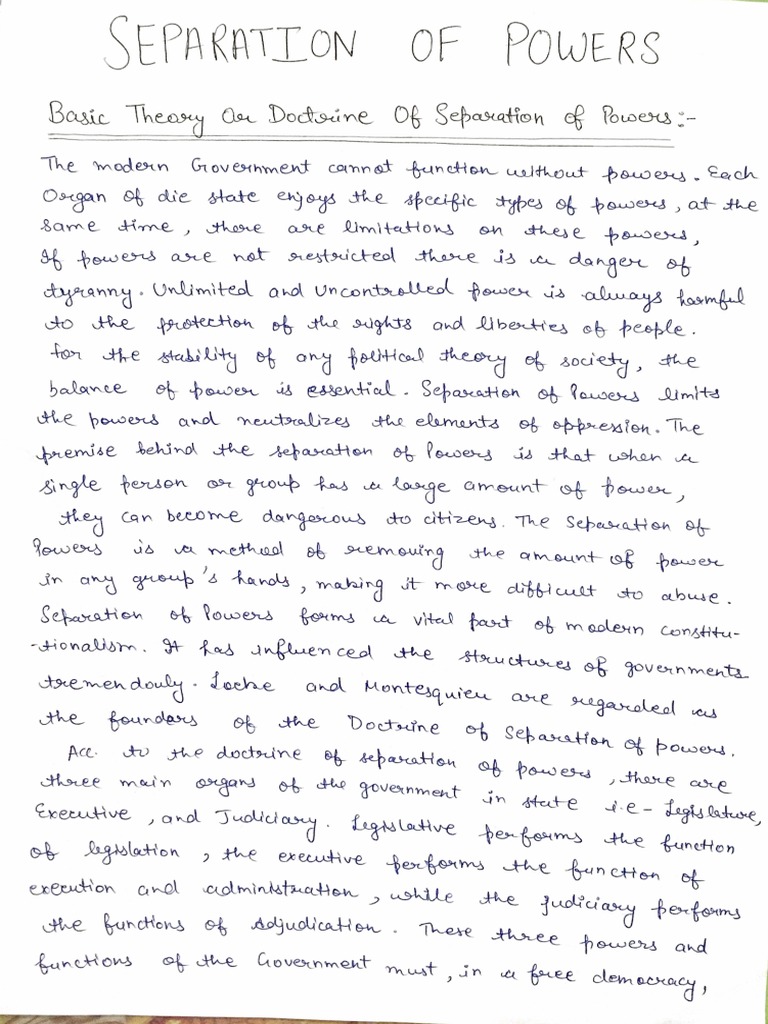 SEPARATION OF POWERS
Basic Theory Or Doctrine Of Separation of Powers:-
The modern Government cannot function without powers. Each
Organ of die state enjoys the specific types of powers, at the
same time, there are limitations on these powers,
If powers are not restricted there is a danger of
tyranny. Unlimited and uncontrolled power is always harmful
to the protection of the rights and liberties of people.
for the stability of any political theory of society, the
balance of power is essential. Separation of Powers limits
the powers and neutralizes the elements of oppression. The
premise behind the separation of Powers is that when a
single person or group has a large amount of power,
they can become dangerous to citizens. The Separation of
Powers is a method of removing the amount of power
in any group's hands, making it more difficult to abuse.
Separation of Powers forms a vital part of modern constitu-
-tionalism. It has influenced the structures of governments
tremendouly. Locke and Montesquieu are regarded as
the founders of the Doctrine of Separation of powers.
Acc. to the doctrine of separation of powers, there are
three main organs of the government in state i.e- Legislature,
Executive, and Judiciary. Legislative performs the function
of legislation, the executive performs the function of
execution and administration, while the judiciary performs
the functions of Adjudication. These three powers and
functions of the Government must, in a free democracy,